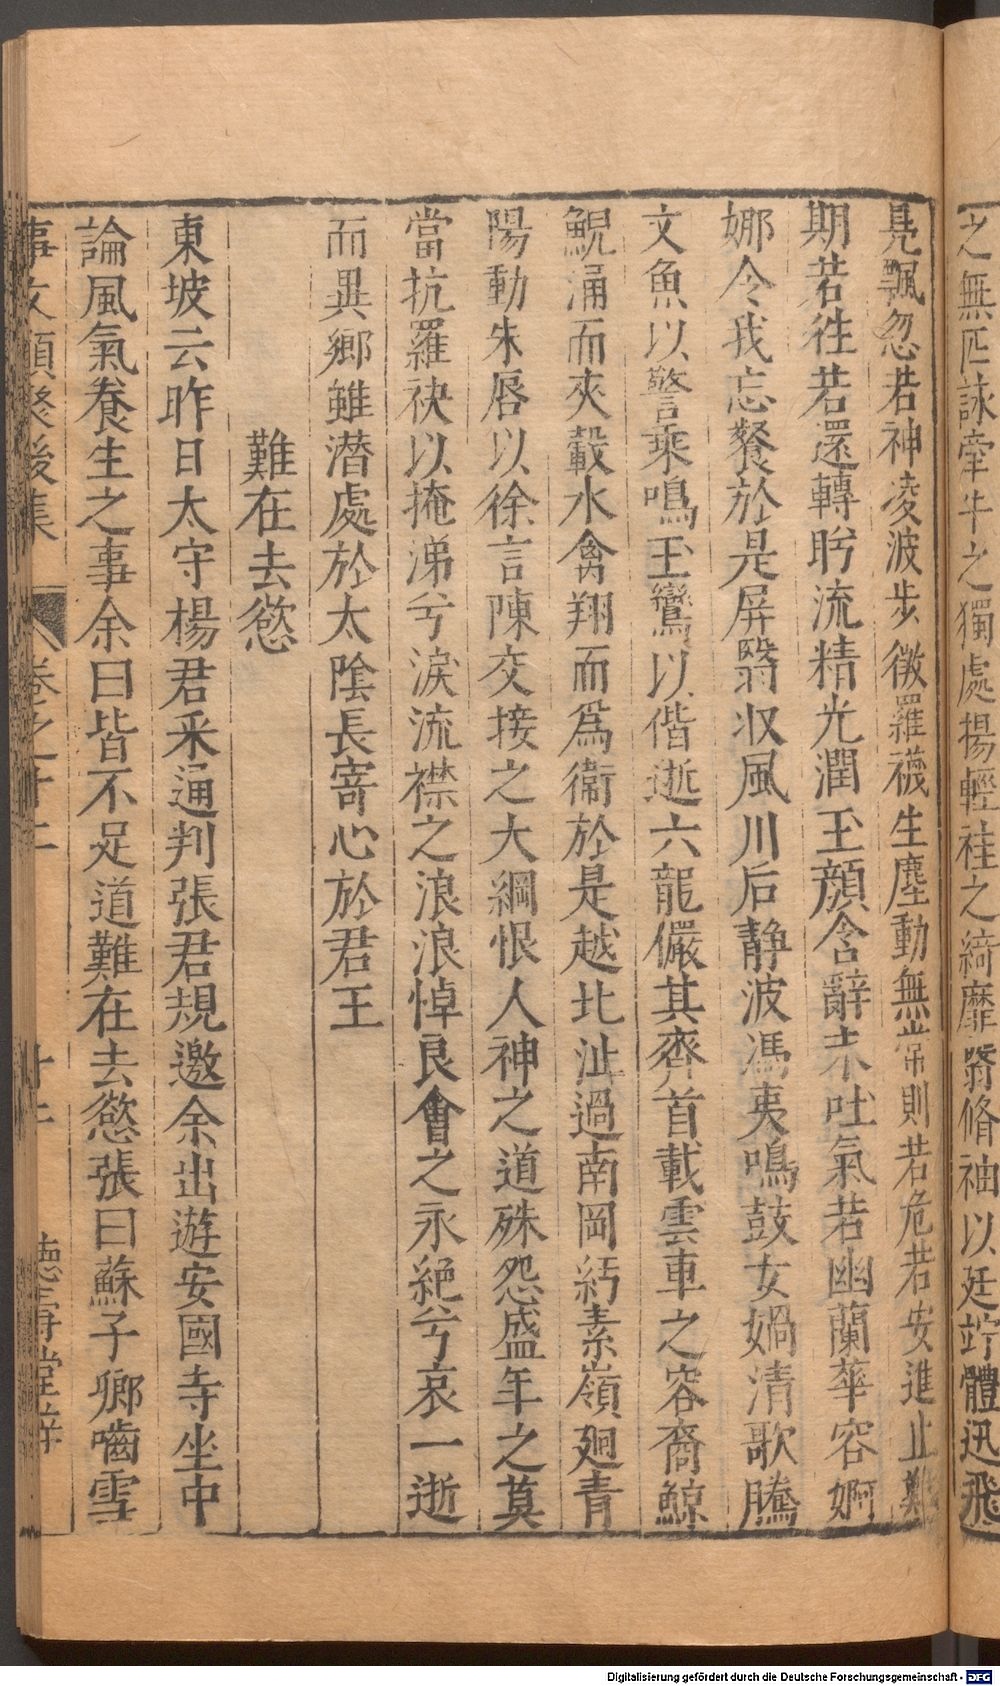 之無匹詠牽牛之獨處揚輕袿之綺靡翳脩袖以延竚體迅飛
鳧飄忽若神凌波步微羅襪生塵動無常則若危若安進止難
期若徃若還轉眄流精光潤玉顔含辭未吐氣若幽蘭華容婀
娜令我忘餐於是屏翳収風川后静波馮夷鳴鼓女媧清歌騰
文魚以警乗鳴玉鸞以偕逝六龍儼其齊首載雲車之容裔鯨
鯢涌而夾轂水禽翔而爲衛於是越北沚過南岡紆素嶺廻青
陽動朱唇以徐言陳交接之大綱恨人神之道殊怨盛年之莫
當抗羅袂以掩涕兮淚流襟之浪浪悼良會之永絶兮哀一逝
而異鄉雖潛處於太陰長寄心於君王
難在去慾
東坡云昨日太守楊君采通判張君規邀余出遊安國寺坐中
論風氣養生之事余曰皆不足道難在去慾張曰蘇子卿嚙雪
事文類聚後集 卷之十二 十二 德壽堂梓
Digitalisierung gefördert durch die Deutsche Forschungsgemeinschaft - DFG